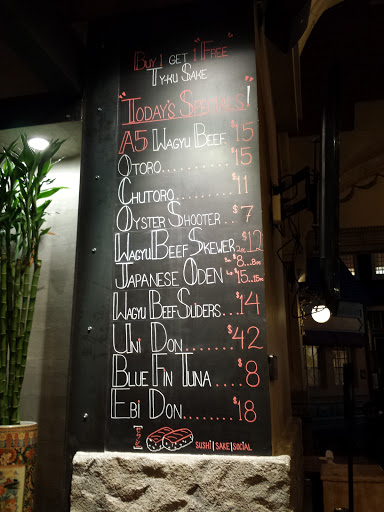 Buy 1 get 1 "Free"
Ty-Ku Sake
"Today's Specials!"
A5 Wagyu Beef $15
Otoro............$15
Chutoro..........$11
Oyster Shooter...$7
Wagyu Beef Skewer $12
Japanese Oden $8 $15
Wagyu Beef Sliders...$14
Uni Don........$42
Blue Fin Tuna ....$8
Ebi Don.........$18
Sushi|Sake|Social